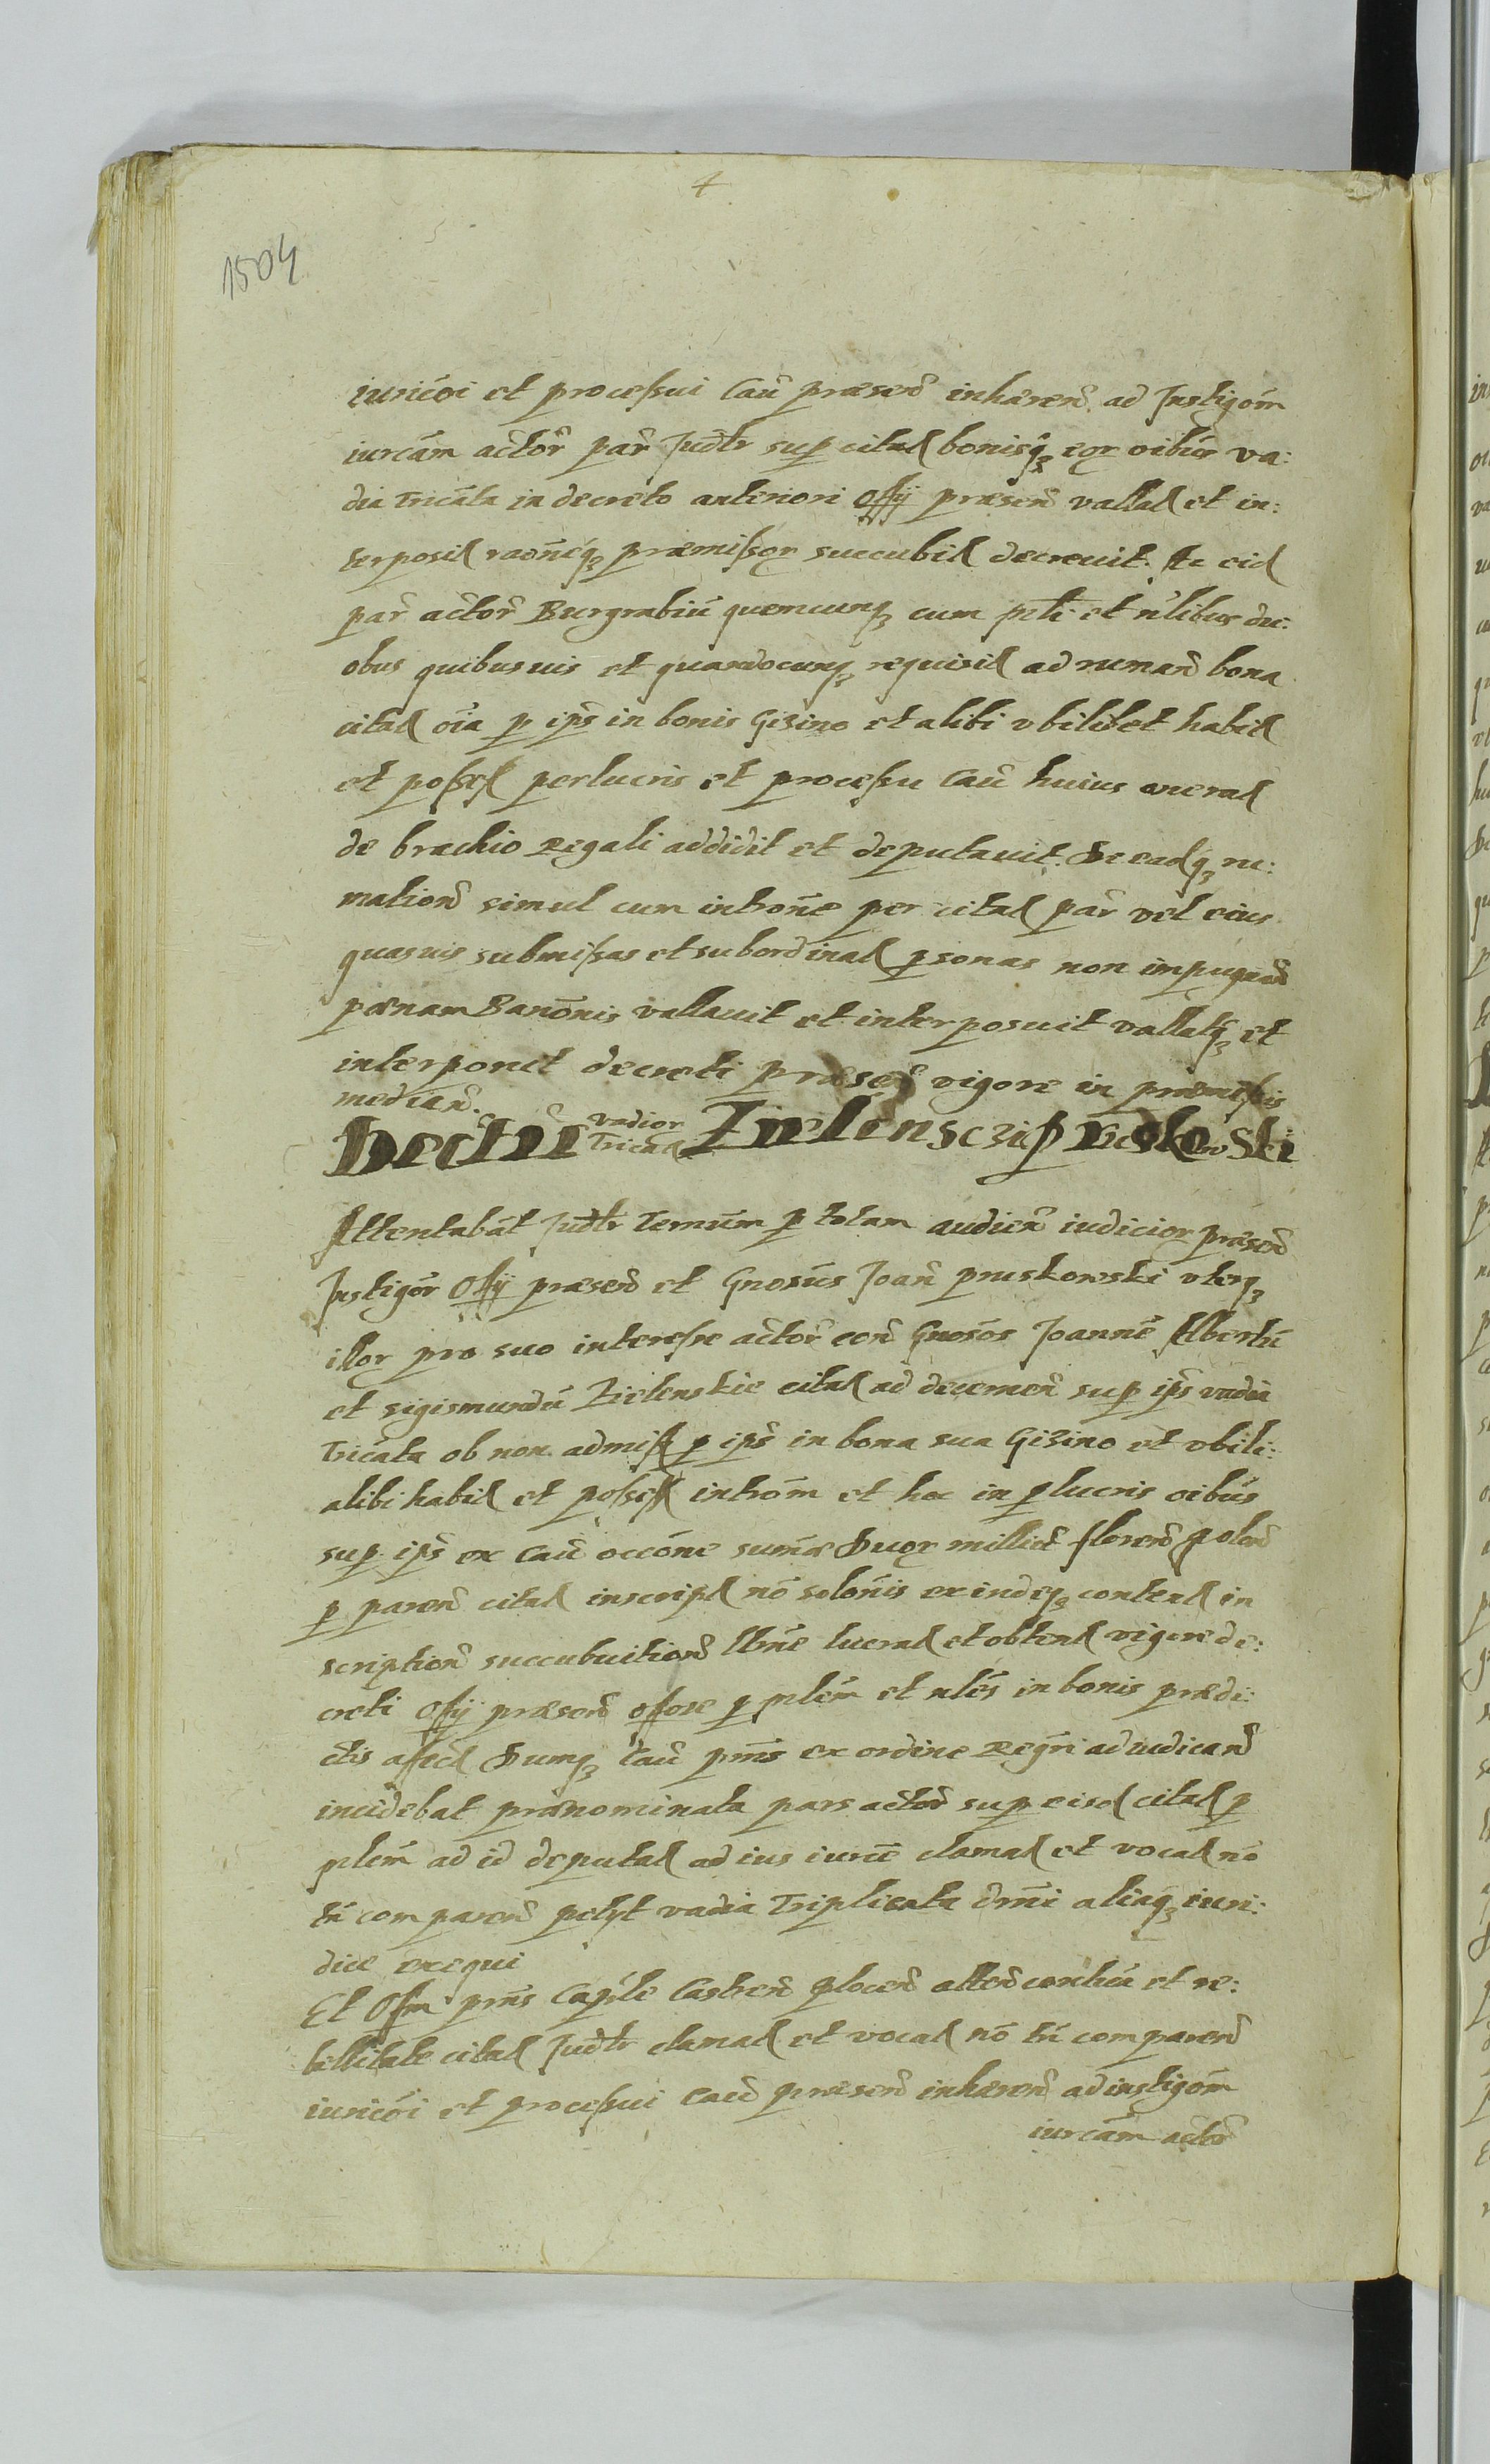 4
1504
iuricõi et processui Cau præsen inhæren ad Instigõm
iurcam actor par Judtr sup citat bonisq eor oibus va:
dia tricata in decreto anteriori Offy præsen vallat et in:
terposit raoneq præmissor succubit decrevit. Ac eid
par actor Burgrabiu quemcunq cum ptli et nlibus du:
obus quibusuis et quandocunq requisit ad ruman bona
citat oia p ips in bonis Gizino et alibi vbilibet habit
et possess perlucris et processu Cau huius onerat
de brachio Regali addidit et deputauit. De eadq ru:
mation simul cum introne per citat par vel eius
quasuis submissas et subordinat psonas non impugnan
pænam Banonis vallauit et interposuit vallatq et
interponet decreti præsen vigore in præmissis
median.
Decru vadior Tricat Zielensczi Pruskowski
Attentabat Judtr Terminum p totam audien iudicior præsen
Instigor Offy præsen et Gnosus Joan pruskowski vterq
illor pro suo interesse actor con Gnosos Joanne Albertu
et sigismundu Zielenskie citat ad decernen sup ips vadia
Tricata ob non admiss p ips in bona sua Gizino et vbili:
alibi habit et possess introm et hoc in plucris oibus
sup ips ex Cau occone sumæ Duor milliu floren polon
p paren citat inscript no solonis exindeq content in
scription succubuition lbrne lucrat et obtent vigore de:
creti Offy præsen offore p plem et nles in bonis prædi:
ctis assecut Dumq Cau pns ex ordine Regri ad iudican
incidebat prænominata pars actor sup eisd citat p
plem ad id deputat ad ius iurie clamat et vocat no
tu comparen petyt vadia Triplicata drni aliaq iuri:
dice exequi
Et Offm pns Capitle Castren plocen atten contu et re:
bellitate citat Judtr clamat et vocat no tu comparen
iuricoi et processui Cau præsen inhæren ad instigom
iurcam actor